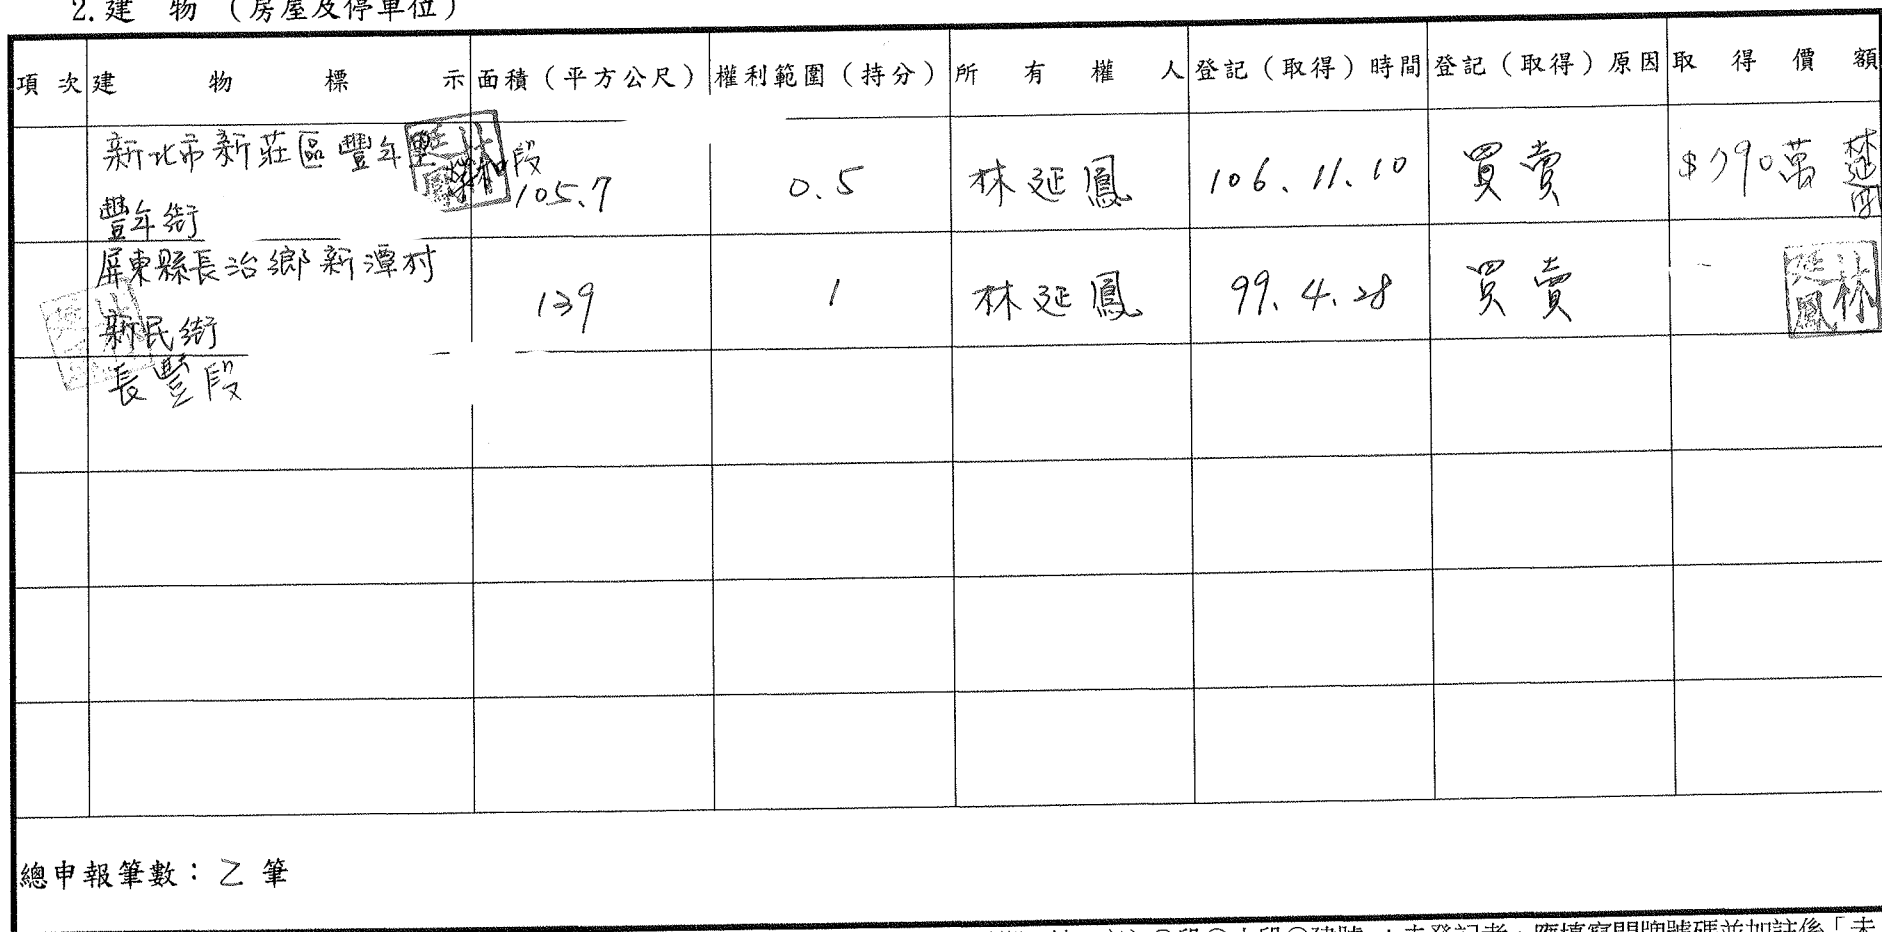 2.建 物 (房屋及停車位)
項次 建物標示 面積(平方公尺) 權利範圍(持分) 所有權人 登記(取得)時間 登記(取得)原因 取得價額
新北市新莊區豐年里 段
豐年街 105.7 0.5 林延鳳 106.11.10 買賣 $790萬
屏東縣長治鄉新潭村
新民街 139 1 林延鳳 99.4.28 買賣
長豐段
林延鳳
總申報筆數:乙筆
未登記者,應填寫門牌號碼並加註後「未